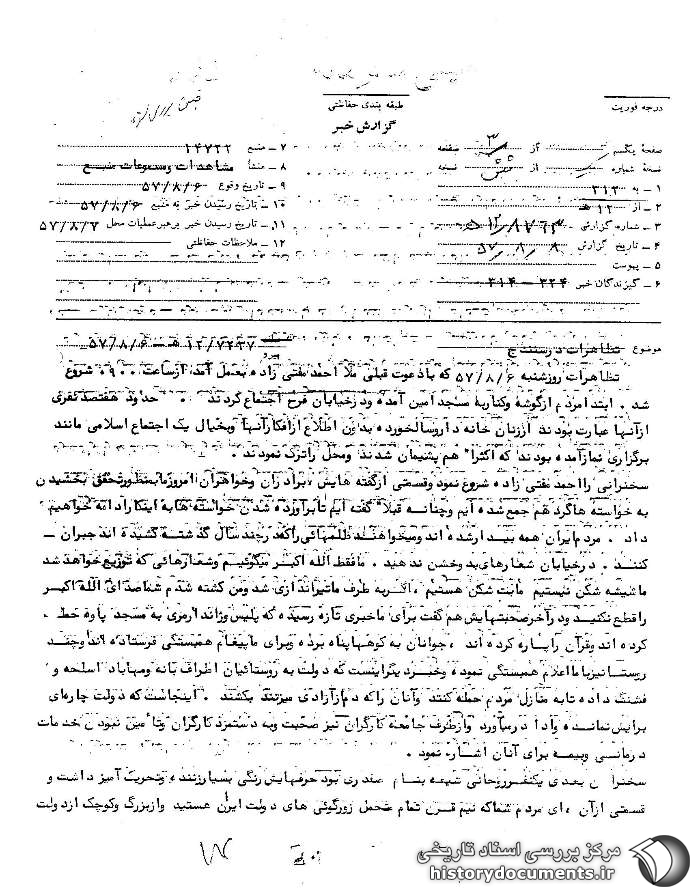 طبقه بندی حفاظتی
درجه فوریت
گزارش خبر
صفحه یکم از ۳ صفحه
نسخه شماره از شش نسخه
۱ - به ۳۱۲
۲ - از ۱۲ هـ
۳ - شماره گزارش ۸۷۶۳/۱۲ هـ
۴ - تاریخ گزارش ۵۷/۸/۸
۵ - پیوست
۶ - گیرندگان خبر ۳۲۴ – ۳۱۴
۷ - منبع ۱۴۷۲۲
۸ - منشأ مشاهدات و مسموعات منبع
۹ - تاریخ وقوع ۵۷/۸/۶
۱۰ - تاریخ رسیدن خبر به منبع ۵۷/۸/۶
۱۱ - تاریخ رسیدن خبر برهبر عملیات محل ۵۷/۸/۷
۱۲ - ملاحظات حفاظتی
موضوع تظاهرات در سنندج
پیرو ۱۲/۷۲۳۷ هـ – ۵۷/۸/۶
تظاهرات روز شنبه ۵۷/۸/۶ که با دعوت قبلی ملا احمد مفتی زاده بعمل آمد از ساعت ۰۹۰۰ شروع
شد . ابتدا مردم از گوشه و کنار به مسجد امین آمده و در خیابان فرح اجتماع کردند حدود هفتصد نفری
از آنها عبارت بودند از زنان خانه دار و سالخورده بدون اطلاع از افکار آنها و بخیال یک اجتماع اسلامی مانند
برگزاری نماز آمده بودند که اکثرا" هم پشیمان شدند و محل را ترک نمودند .
سخنرانی را احمد مفتی زاده شروع نمود و قسمتی از گفته هایش ، برادران و خواهران امروز ما بمنظور تحقق بخشیدن
به خواسته ها گرد هم جمع شده ایم و چنانچه قبلا" گفته ایم تا برآورده شدن خواسته ها به اینکار ادامه خواهیم
داد . مردم ایران همه بیدار شده اند و میخواهند ظلمهائی را که در چند سال گذشته کشیده اند جبران –
کنند . در خیابان شعارهای بد و خشن ندهید . ما فقط الله اکبر میگوئیم و شعارهائی که توزیع خواهد شد
ما شیشه شکن نیستیم ما بت شکن هستیم ، اگر به طرف ما تیراندازی شد و من کشته شدم شما صدای الله اکبر
را قطع نکنید و در آخر صحبتهایش هم گفت برای ما خبری تازه رسیده که پلیس و ژاندارمری به مسجد پاوه حمله
کرده اند و قرآن را پاره کرده اند ، جوانان به کوهها پناه برده و برای ما پیغام همبستگی فرستاده اند و چند
روستا نیز با ما اعلام همبستگی نموده و خبر دیگر اینست که دولت به روستائیان اطراف بانه و مهاباد اسلحه و
فشنگ داده تا به منازل مردم حمله کنند و آنان را که دم از آزادی میزنند بکشند . اینجاست که دولت چاره ای
برایش نمانده و ادا در میآورد و از طرف جامعه کارگران نیز صحبت و به دستمزد کارگران و تأمین نبودن خدمات
درمانی و بیمه برای آنان اشاره نمود .
سخنران بعدی یکنفر روحانی شیعه بنام صدری بود حرفهایش رنگی بسیار زننده و تحریک آمیز داشت و
قسمتی از آن ، ای مردم شما که نیم قرن تمام متحمل زورگوئی های دولت ایران هستید و از بزرگ و کوچک از دولت
مرکز بررسی اسناد تاریخی
historydocuments.ir